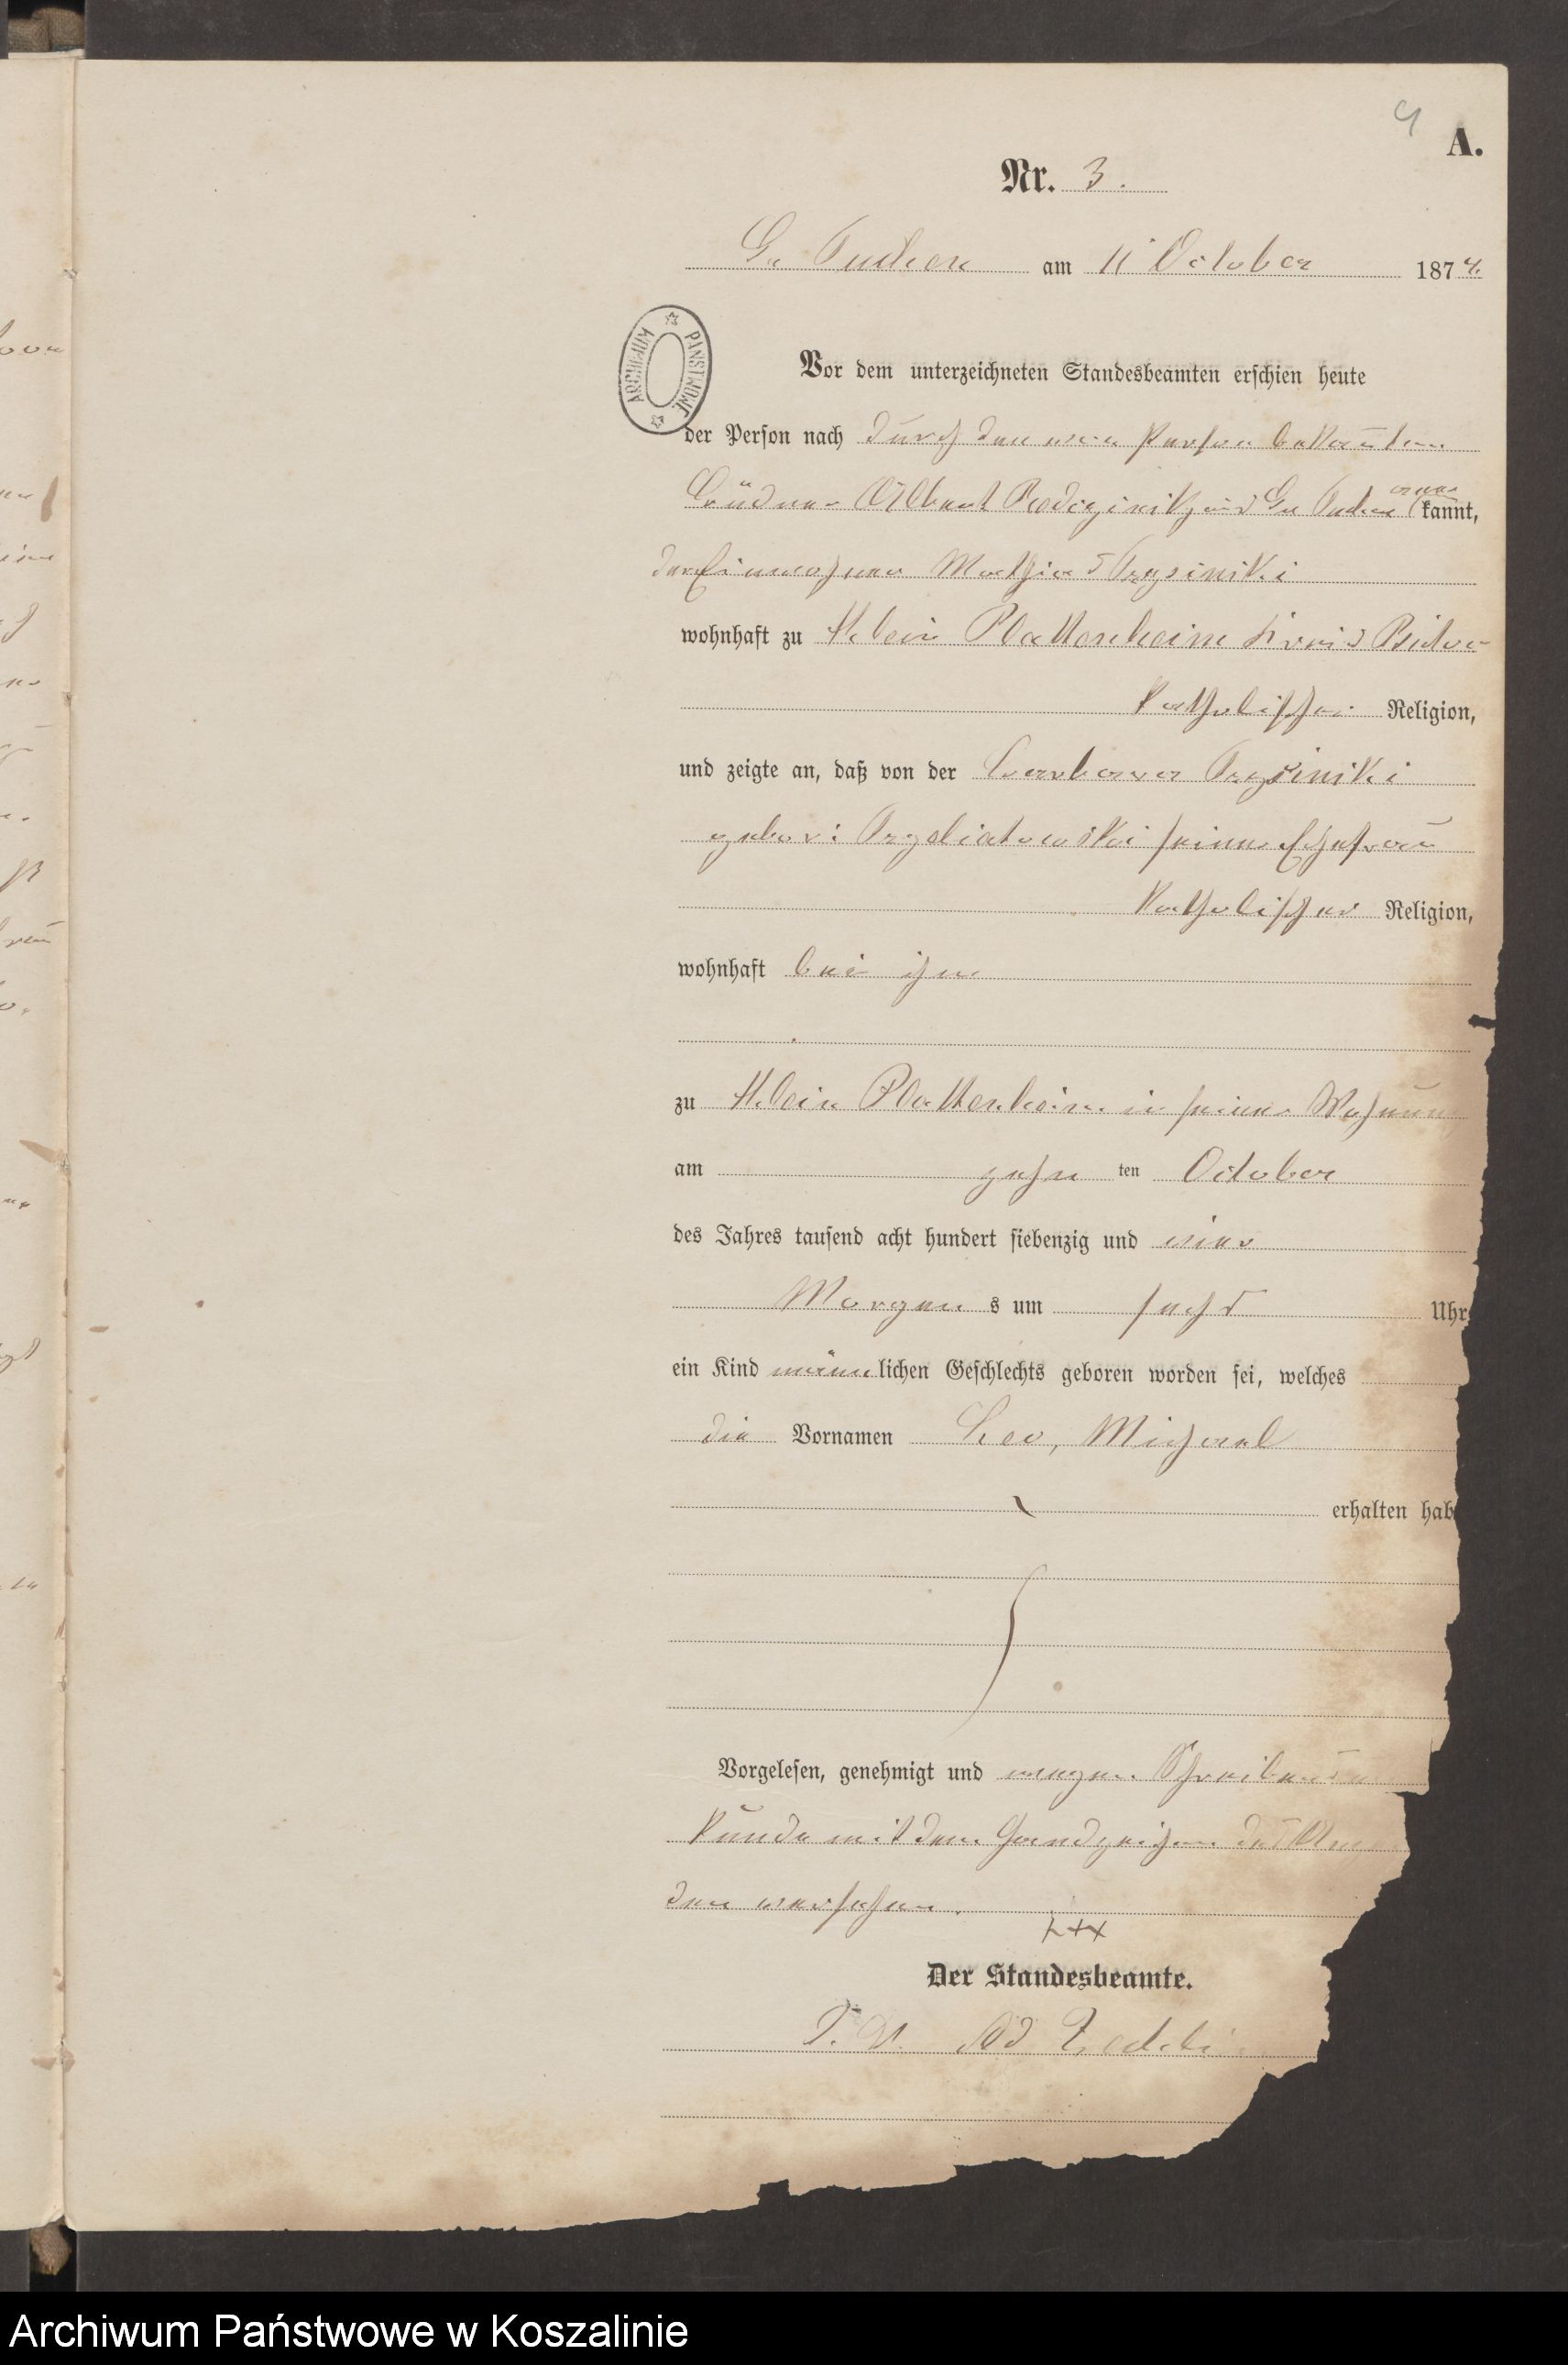 4
A.
Nr. 3.
Gr Tuchen am 11 October 1874.
ARCHIWUM PAŃSTWOWE
Vor dem unterzeichneten Standesbeamten erschien heute
der Person nach durch den von Person bekannten
Büdner Albert aus Gr Tuchen kannt,
der Einwohner Mathias
wohnhaft zu Klein Plattenheim Kreis Bütow
katholischer Religion,
und zeigte an, daß von der Barbara
gebor: seiner Ehefrau
katholischer Religion,
wohnhaft bei ihm
zu Klein Plattenheim in seiner Wohnung
am zehn ten October
des Jahres tausend acht hundert siebenzig und vier
Morgen s um sechs Uhr
ein Kind männlichen Geschlechts geboren worden sei, welches
die Vornamen Leo, Michael
erhalten hab
Vorgelesen, genehmigt und wegen Schreibens
kunde mit dem Handzeichen des
den versehen.
+++
Der Standesbeamte.
Archiwum Państwowe w Koszalinie